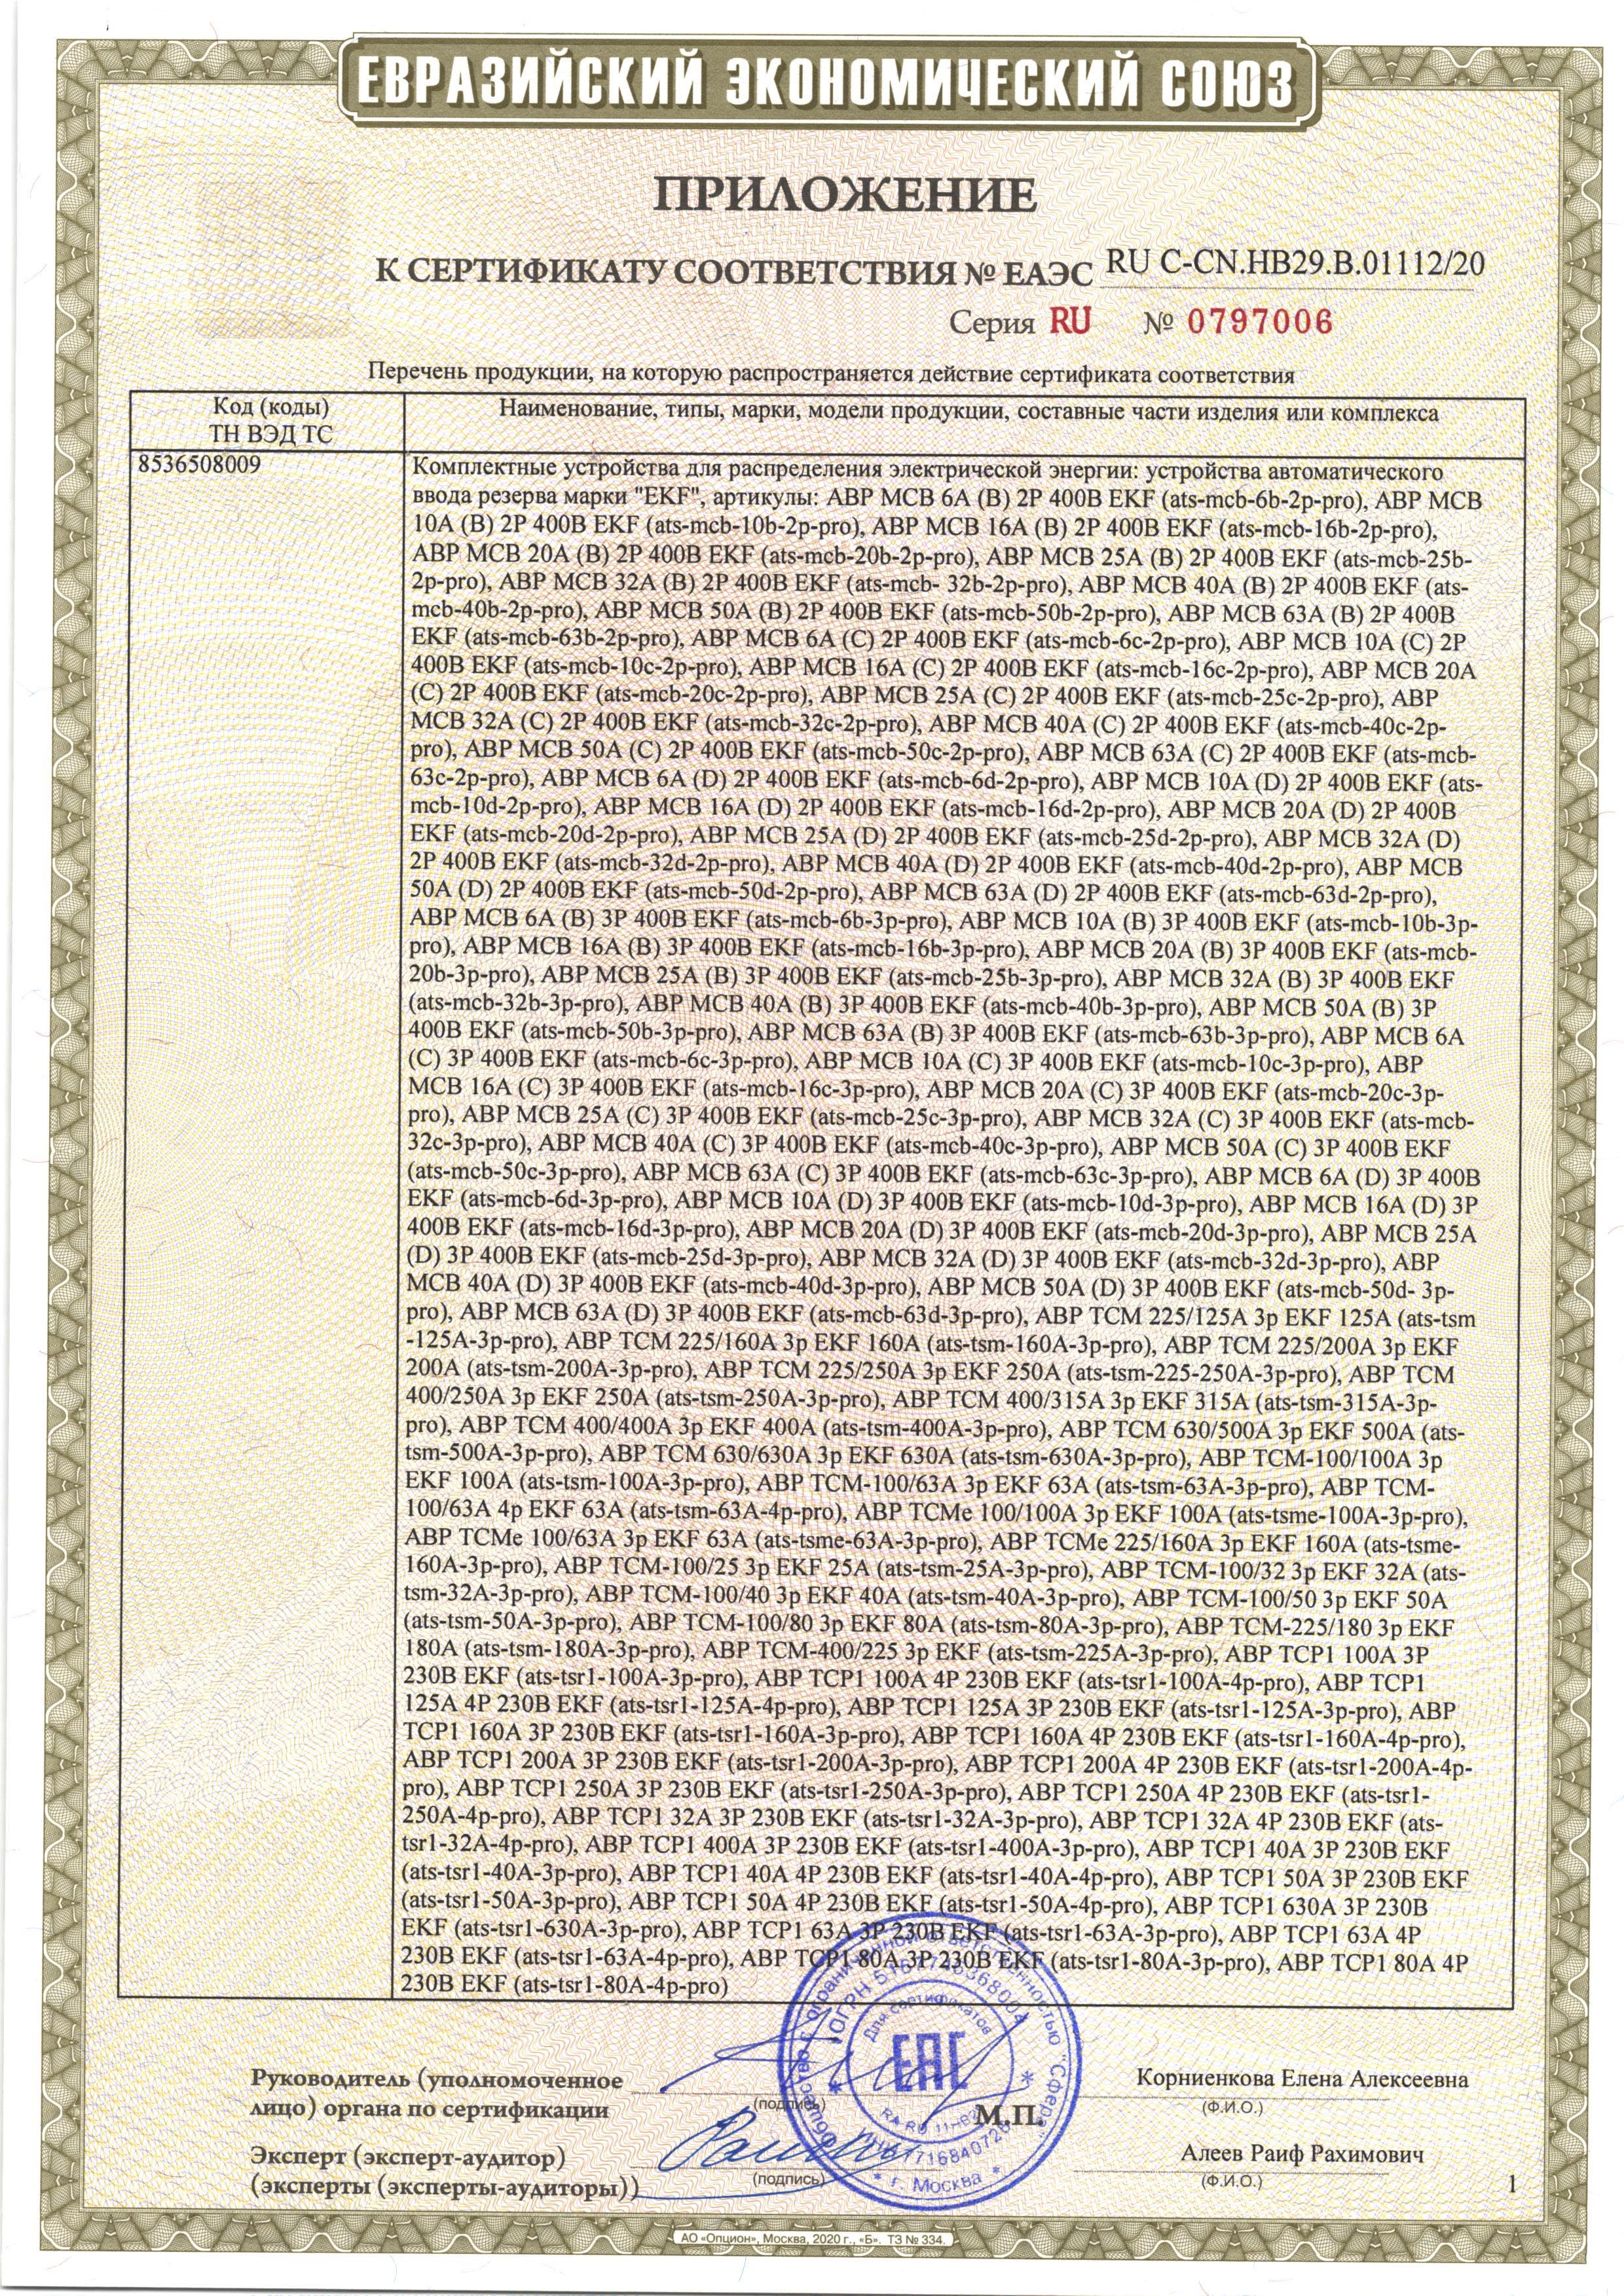 ЕВРАЗИЙСКИЙ ЭКОНОМИЧЕСКИЙ СОЮЗ
ПРИЛОЖЕНИЕ
К СЕРТИФИКАТУ СООТВЕТСТВИЯ № ЕАЭС RU C-CN.НВ29.В.01112/20
Серия RU № 0797006
Перечень продукции, на которую распространяется действие сертификата соответствия
Код (коды)
ТН ВЭД ТС
Наименование, типы, марки, модели продукции, составные части изделия или комплекса
8536508009
Комплектные устройства для распределения электрической энергии: устройства автоматического
ввода резерва марки "EKF", артикулы: АВР МСВ 6А (В) 2Р 400В EKF (ats-mcb-6b-2p-pro), АВР МСВ
10А (В) 2Р 400В EKF (ats-mcb-10b-2p-pro), АВР МСВ 16А (В) 2Р 400В EKF (ats-mcb-16b-2p-pro),
АВР МСВ 20А (В) 2Р 400В EKF (ats-mcb-20b-2p-pro), АВР МСВ 25А (В) 2Р 400В EKF (ats-mcb-25b-
2p-pro), АВР МСВ 32А (В) 2Р 400В EKF (ats-mcb- 32b-2p-pro), АВР МСВ 40А (В) 2Р 400В EKF (ats-
mcb-40b-2p-pro), АВР МСВ 50А (В) 2Р 400В EKF (ats-mcb-50b-2p-pro), АВР МСВ 63А (В) 2Р 400В
EKF (ats-mcb-63b-2p-pro), АВР МСВ 6А (С) 2Р 400В EKF (ats-mcb-6c-2p-pro), АВР МСВ 10А (С) 2Р
400В EKF (ats-mcb-10c-2p-pro), АВР МСВ 16А (С) 2Р 400В EKF (ats-mcb-16c-2p-pro), АВР МСВ 20А
(С) 2Р 400В EKF (ats-mcb-20c-2p-pro), АВР МСВ 25А (С) 2Р 400В EKF (ats-mcb-25c-2p-pro), АВР
МСВ 32А (С) 2Р 400В EKF (ats-mcb-32c-2p-pro), АВР МСВ 40А (С) 2Р 400В EKF (ats-mcb-40c-2p-
pro), АВР МСВ 50А (С) 2Р 400В EKF (ats-mcb-50c-2p-pro), АВР МСВ 63А (С) 2Р 400В EKF (ats-mcb-
63c-2p-pro), АВР МСВ 6А (D) 2Р 400В EKF (ats-mcb-6d-2p-pro), АВР МСВ 10А (D) 2Р 400В EKF (ats-
mcb-10d-2p-pro), АВР МСВ 16А (D) 2Р 400В EKF (ats-mcb-16d-2p-pro), АВР МСВ 20А (D) 2Р 400В
EKF (ats-mcb-20d-2p-pro), АВР МСВ 25А (D) 2Р 400В EKF (ats-mcb-25d-2p-pro), АВР МСВ 32А (D)
2Р 400В EKF (ats-mcb-32d-2p-pro), АВР МСВ 40А (D) 2Р 400В EKF (ats-mcb-40d-2p-pro), АВР МСВ
50А (D) 2Р 400В EKF (ats-mcb-50d-2p-pro), АВР МСВ 63А (D) 2Р 400В EKF (ats-mcb-63d-2p-pro),
АВР МСВ 6А (В) 3Р 400В EKF (ats-mcb-6b-3p-pro), АВР МСВ 10А (В) 3Р 400В EKF (ats-mcb-10b-3p-
pro), АВР МСВ 16А (В) 3Р 400В EKF (ats-mcb-16b-3p-pro), АВР МСВ 20А (В) 3Р 400В EKF (ats-mcb-
20b-3p-pro), АВР МСВ 25А (В) 3Р 400В EKF (ats-mcb-25b-3p-pro), АВР МСВ 32А (В) 3Р 400В EKF
(ats-mcb-32b-3p-pro), АВР МСВ 40А (В) 3Р 400В EKF (ats-mcb-40b-3p-pro), АВР МСВ 50А (В) 3Р
400В EKF (ats-mcb-50b-3p-pro), АВР МСВ 63А (В) 3Р 400В EKF (ats-mcb-63b-3p-pro), АВР МСВ 6А
(С) 3Р 400В EKF (ats-mcb-6c-3p-pro), АВР МСВ 10А (С) 3Р 400В EKF (ats-mcb-10c-3p-pro), АВР
МСВ 16А (С) 3Р 400В EKF (ats-mcb-16c-3p-pro), АВР МСВ 20А (С) 3Р 400В EKF (ats-mcb-20c-3p-
pro), АВР МСВ 25А (С) 3Р 400В EKF (ats-mcb-25c-3p-pro), АВР МСВ 32А (С) 3Р 400В EKF (ats-mcb-
32c-3p-pro), АВР МСВ 40А (С) 3Р 400В EKF (ats-mcb-40c-3p-pro), АВР МСВ 50А (С) 3Р 400В EKF
(ats-mcb-50c-3p-pro), АВР МСВ 63А (С) 3Р 400В EKF (ats-mcb-63c-3p-pro), АВР МСВ 6А (D) 3Р 400В
EKF (ats-mcb-6d-3p-pro), АВР МСВ 10А (D) 3Р 400В EKF (ats-mcb-10d-3p-pro), АВР МСВ 16А (D) 3Р
400В EKF (ats-mcb-16d-3p-pro), АВР МСВ 20А (D) 3Р 400В EKF (ats-mcb-20d-3p-pro), АВР МСВ 25А
(D) 3Р 400В EKF (ats-mcb-25d-3p-pro), АВР МСВ 32А (D) 3Р 400В EKF (ats-mcb-32d-3p-pro), АВР
МСВ 40А (D) 3Р 400В EKF (ats-mcb-40d-3p-pro), АВР МСВ 50А (D) 3Р 400В EKF (ats-mcb-50d- 3p-
pro), АВР МСВ 63А (D) 3Р 400В EKF (ats-mcb-63d-3p-pro), АВР ТСМ 225/125А 3р EKF 125А (ats-tsm
-125A-3p-pro), АВР ТСМ 225/160А 3р EKF 160А (ats-tsm-160A-3p-pro), АВР ТСМ 225/200А 3р EKF
200А (ats-tsm-200A-3p-pro), АВР ТСМ 225/250А 3р EKF 250А (ats-tsm-225-250A-3p-pro), АВР ТСМ
400/250А 3р EKF 250А (ats-tsm-250A-3p-pro), АВР ТСМ 400/315А 3р EKF 315А (ats-tsm-315A-3p-
pro), АВР ТСМ 400/400А 3р EKF 400А (ats-tsm-400A-3p-pro), АВР ТСМ 630/500А 3р EKF 500А (ats-
tsm-500A-3p-pro), АВР ТСМ 630/630А 3р EKF 630А (ats-tsm-630A-3p-pro), АВР ТСМ-100/100А 3р
EKF 100А (ats-tsm-100A-3p-pro), АВР ТСМ-100/63А 3р EKF 63А (ats-tsm-63A-3p-pro), АВР ТСМ-
100/63А 4р EKF 63А (ats-tsm-63A-4p-pro), АВР ТСМе 100/100А 3р EKF 100А (ats-tsme-100A-3p-pro),
АВР ТСМе 100/63А 3р EKF 63А (ats-tsme-63A-3p-pro), АВР ТСМе 225/160А 3р EKF 160А (ats-tsme-
160A-3p-pro), АВР ТСМ-100/25 3р EKF 25А (ats-tsm-25A-3p-pro), АВР ТСМ-100/32 3р EKF 32А (ats-
tsm-32A-3p-pro), АВР ТСМ-100/40 3р EKF 40А (ats-tsm-40A-3p-pro), АВР ТСМ-100/50 3р EKF 50А
(ats-tsm-50A-3p-pro), АВР ТСМ-100/80 3р EKF 80А (ats-tsm-80A-3p-pro), АВР ТСМ-225/180 3р EKF
180А (ats-tsm-180A-3p-pro), АВР ТСМ-400/225 3р EKF (ats-tsm-225A-3p-pro), АВР ТСР1 100А 3Р
230В EKF (ats-tsr1-100A-3p-pro), АВР ТСР1 100А 4Р 230В EKF (ats-tsr1-100A-4p-pro), АВР ТСР1
125А 4Р 230В EKF (ats-tsr1-125A-4p-pro), АВР ТСР1 125А 3Р 230В EKF (ats-tsr1-125A-3p-pro), АВР
ТСР1 160А 3Р 230В EKF (ats-tsr1-160A-3p-pro), АВР ТСР1 160А 4Р 230В EKF (ats-tsr1-160A-4p-pro),
АВР ТСР1 200А 3Р 230В EKF (ats-tsr1-200A-3p-pro), АВР ТСР1 200А 4Р 230В EKF (ats-tsr1-200A-4p-
pro), АВР ТСР1 250А 3Р 230В EKF (ats-tsr1-250A-3p-pro), АВР ТСР1 250А 4Р 230В EKF (ats-tsr1-
250A-4p-pro), АВР ТСР1 32А 3Р 230В EKF (ats-tsr1-32A-3p-pro), АВР ТСР1 32А 4Р 230В EKF (ats-
tsr1-32A-4p-pro), АВР ТСР1 400А 3Р 230В EKF (ats-tsr1-400A-3p-pro), АВР ТСР1 40А 3Р 230В EKF
(ats-tsr1-40A-3p-pro), АВР ТСР1 40А 4Р 230В EKF (ats-tsr1-40A-4p-pro), АВР ТСР1 50А 3Р 230В EKF
(ats-tsr1-50A-3p-pro), АВР ТСР1 50А 4Р 230В EKF (ats-tsr1-50A-4p-pro), АВР ТСР1 630А 3Р 230В
EKF (ats-tsr1-630A-3p-pro), АВР ТСР1 63А 3Р 230В EKF (ats-tsr1-63A-3p-pro), АВР ТСР1 63А 4Р
230В EKF (ats-tsr1-63A-4p-pro), АВР ТСР1 80А 3Р 230В EKF (ats-tsr1-80A-3p-pro), АВР ТСР1 80А 4Р
230В EKF (ats-tsr1-80A-4p-pro)
Общество с ограниченной ответственностью "Сфера"
ОГРН
Для сертификатов
EAC
* г. Москва *
Руководитель (уполномоченное
лицо) органа по сертификации
(подпись)
М.П.
Корниенкова Елена Алексеевна
(Ф.И.О.)
Эксперт (эксперт-аудитор)
(эксперты (эксперты-аудиторы))
(подпись)
Алеев Раиф Рахимович
(Ф.И.О.)
1
АО «Опцион», Москва, 2020 г., «Б». ТЗ № 334.